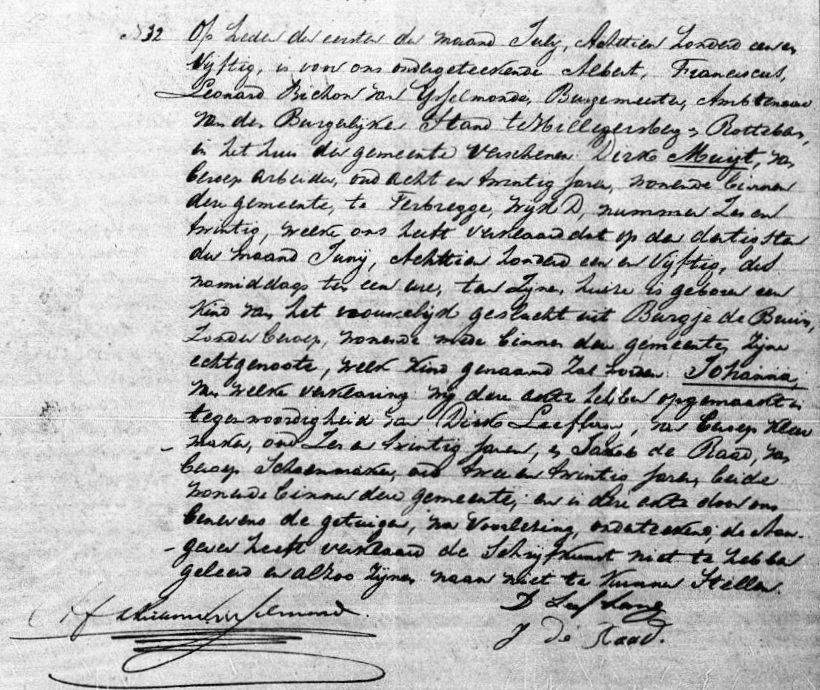 N 32 Op heden de eersten der maand July, Achttien honderd een en
Vijftig, is voor ons ondergeteekende Albert, Franciscus,
Leonard Bichon van Ysselmonde, Burgemeester, Ambtenaar
van den Burgerlijken Stand te Hillegersberg en Rotteban,
in het huis der gemeente verschenen Dirk Muijt, van
beroep arbeider, oud acht en twintig jaren, wonende binnen
deze gemeente, te Terbregge, wijk D, nummer Zes en
twintig, welke ons heeft verklaard dat op den dertigsten
der maand Junij, Achttien honderd een en Vijftig, des
namiddags ten een ure, ten zijnen huize is geboren een
Kind van het vrouwelijk geslacht uit Burgje de Bruin,
Zonder beroep, wonende mede binnen deze gemeente, Zijne
echtgenoote, welk Kind genaamd zal worden Johanna,
van welke verklaring wij deze akte hebben opgemaakt in
tegenwoordigheid van Dirk Leeflang, van beroep Kleer
- maker, oud Zes en twintig jaren, en Jakob de Raad, van
beroep Schoenmaker, oud twee en twintig jaren, beide
wonende binnen deze gemeente; en is deze akte door ons
benevens de getuigen, na voorlezing, onderteekend; de Aan-
- gever heeft verklaard de Schrijfkunst niet te hebben
geleerd en alzoo Zijnen naam niet te Kunnen Stellen.
D Leeflang
J de Raad.